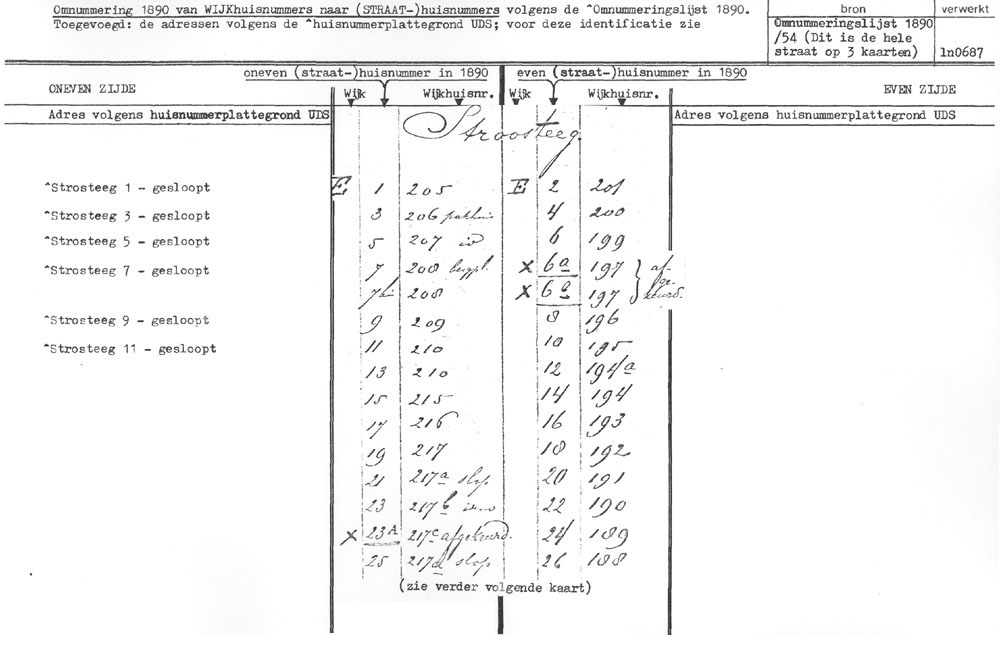 Omnummering 1890 van WIJKhuisnummers naar (STRAAT-)huisnummers volgens de ^Omnummeringslijst 1890.
Toegevoegd: de adressen volgens de ^huisnummerplattegrond UDS; voor deze identificatie zie
bron
verwerkt
Omnummeringslijst 1890
/54 (Dit is de hele
straat op 3 kaarten)
ln0687
oneven (straat-)huisnummer in 1890
even (straat-)huisnummer in 1890
ONEVEN ZIJDE
Wijk
Wijkhuisnr.
Wijk
Wijkhuisnr.
EVEN ZIJDE
Adres volgens huisnummerplattegrond UDS
Adres volgens huisnummerplattegrond UDS
Stroosteeg.
^Strosteeg 1 - gesloopt E 1 205 E 2 201
^Strosteeg 3 - gesloopt 3 206 4 200
^Strosteeg 5 - gesloopt 5 207 6 199
^Strosteeg 7 - gesloopt 7 208 x 6a 197 af-
ge-
keurd.
208 x 6a 197
^Strosteeg 9 - gesloopt 9 209 8 196
^Strosteeg 11 - gesloopt 11 210 10 195
13 210 12 194a
15 215 14 194
17 216 16 193
19 217 18 192
21 217a slop 20 191
23 217b 22 190
x 23A 217c afgekeurd. 24 189
25 217d slop 26 188
(zie verder volgende kaart)